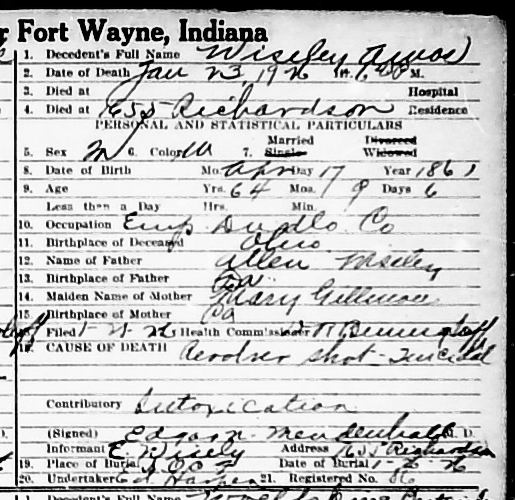 Fort Wayne, Indiana
1. Decedent's Full Name Wiseley Amos
2. Date of Death Jan 23 1926 M.
3. Died at Hospital
4. Died at 1655 Richardson Residence
PERSONAL AND STATISTICAL PARTICULARS
Married Divorced
5. Sex M 6. Color W 7. Single Widowed
8. Date of Birth Mo. Apr Day 17 Year 1861
9. Age Yrs. 64 Mos. 9 Days 6
Less than a Day Hrs. Min.
10. Occupation Emp Dudlo Co
11. Birthplace of Deceased Ohio
12. Name of Father Allen Wiseley
13. Birthplace of Father Pa
14. Maiden Name of Mother Mary
15. Birthplace of Mother Pa
Filed Health Commissioner
CAUSE OF DEATH Revolver shot - Suicidal
Contributory Intoxication
(Signed) Edgar N. Mendenhall M. D.
Informant E. Wisely Address 1655 Richardson
19. Place of Burial Date of Burial 1-26-26
20. Undertaker 21. Registered No. 86